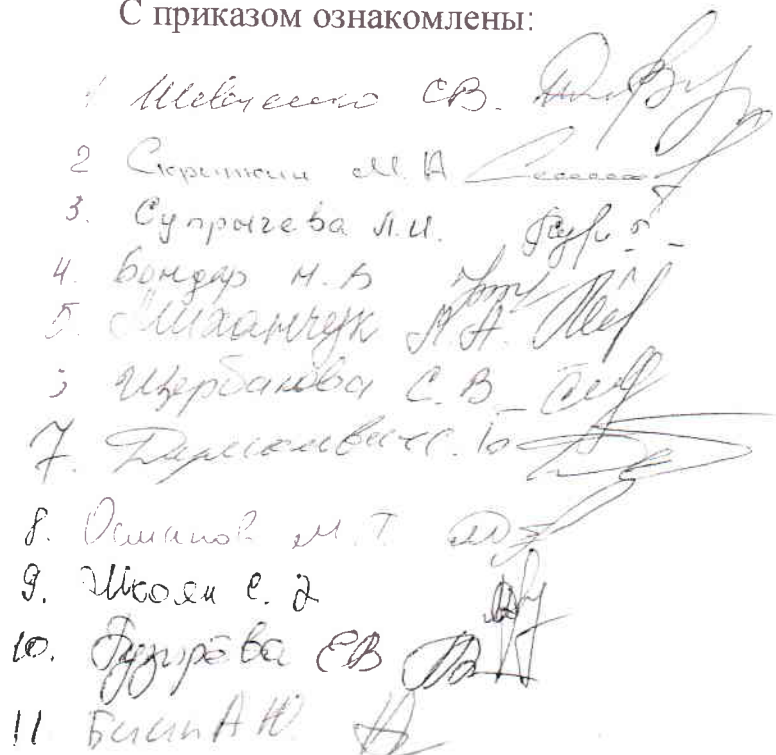 С приказом ознакомлены:
1 Шевченко С.В.
2 Скрипкин М.А
3. Супрычева Л.И.
4. Бондар Н.В
5. Миханчук А.А.
Щербакова С.В
7.
8. Османов М.Т.
9. Школяк С.
10. Пузырёва ЕВ
11. А Ю.